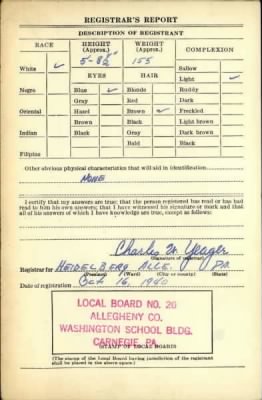 REGISTRAR'S REPORT
DESCRIPTION OF REGISTRANT
RACE HEIGHT (Approx.) WEIGHT (Approx.) COMPLEXION
5-8½" 155
White ✓ Sallow
EYES HAIR Light ✓
Negro Blue ✓ Blonde Ruddy
Gray Red Dark
Oriental Hazel Brown ✓ Freckled
Brown Black Light brown
Indian Black Gray Dark brown
Bald Black
Filipino
Other obvious physical characteristics that will aid in identification
NONE
I certify that my answers are true; that the person registered has read or has had
read to him his own answers; that I have witnessed his signature or mark and that
all of his answers of which I have knowledge are true, except as follows:
Charles H. Yeager
(Signature of registrar)
Registrar for HEIDELBERG ALLE. PA.
(Precinct) (Ward) (City or county) (State)
Date of registration Oct 16, 1940
LOCAL BOARD NO. 26
ALLEGHENY CO.
WASHINGTON SCHOOL BLDG.
CARNEGIE, PA.
(STAMP OF LOCAL BOARD)
(The stamp of the Local Board having jurisdiction of the registrant
shall be placed in the above space.)